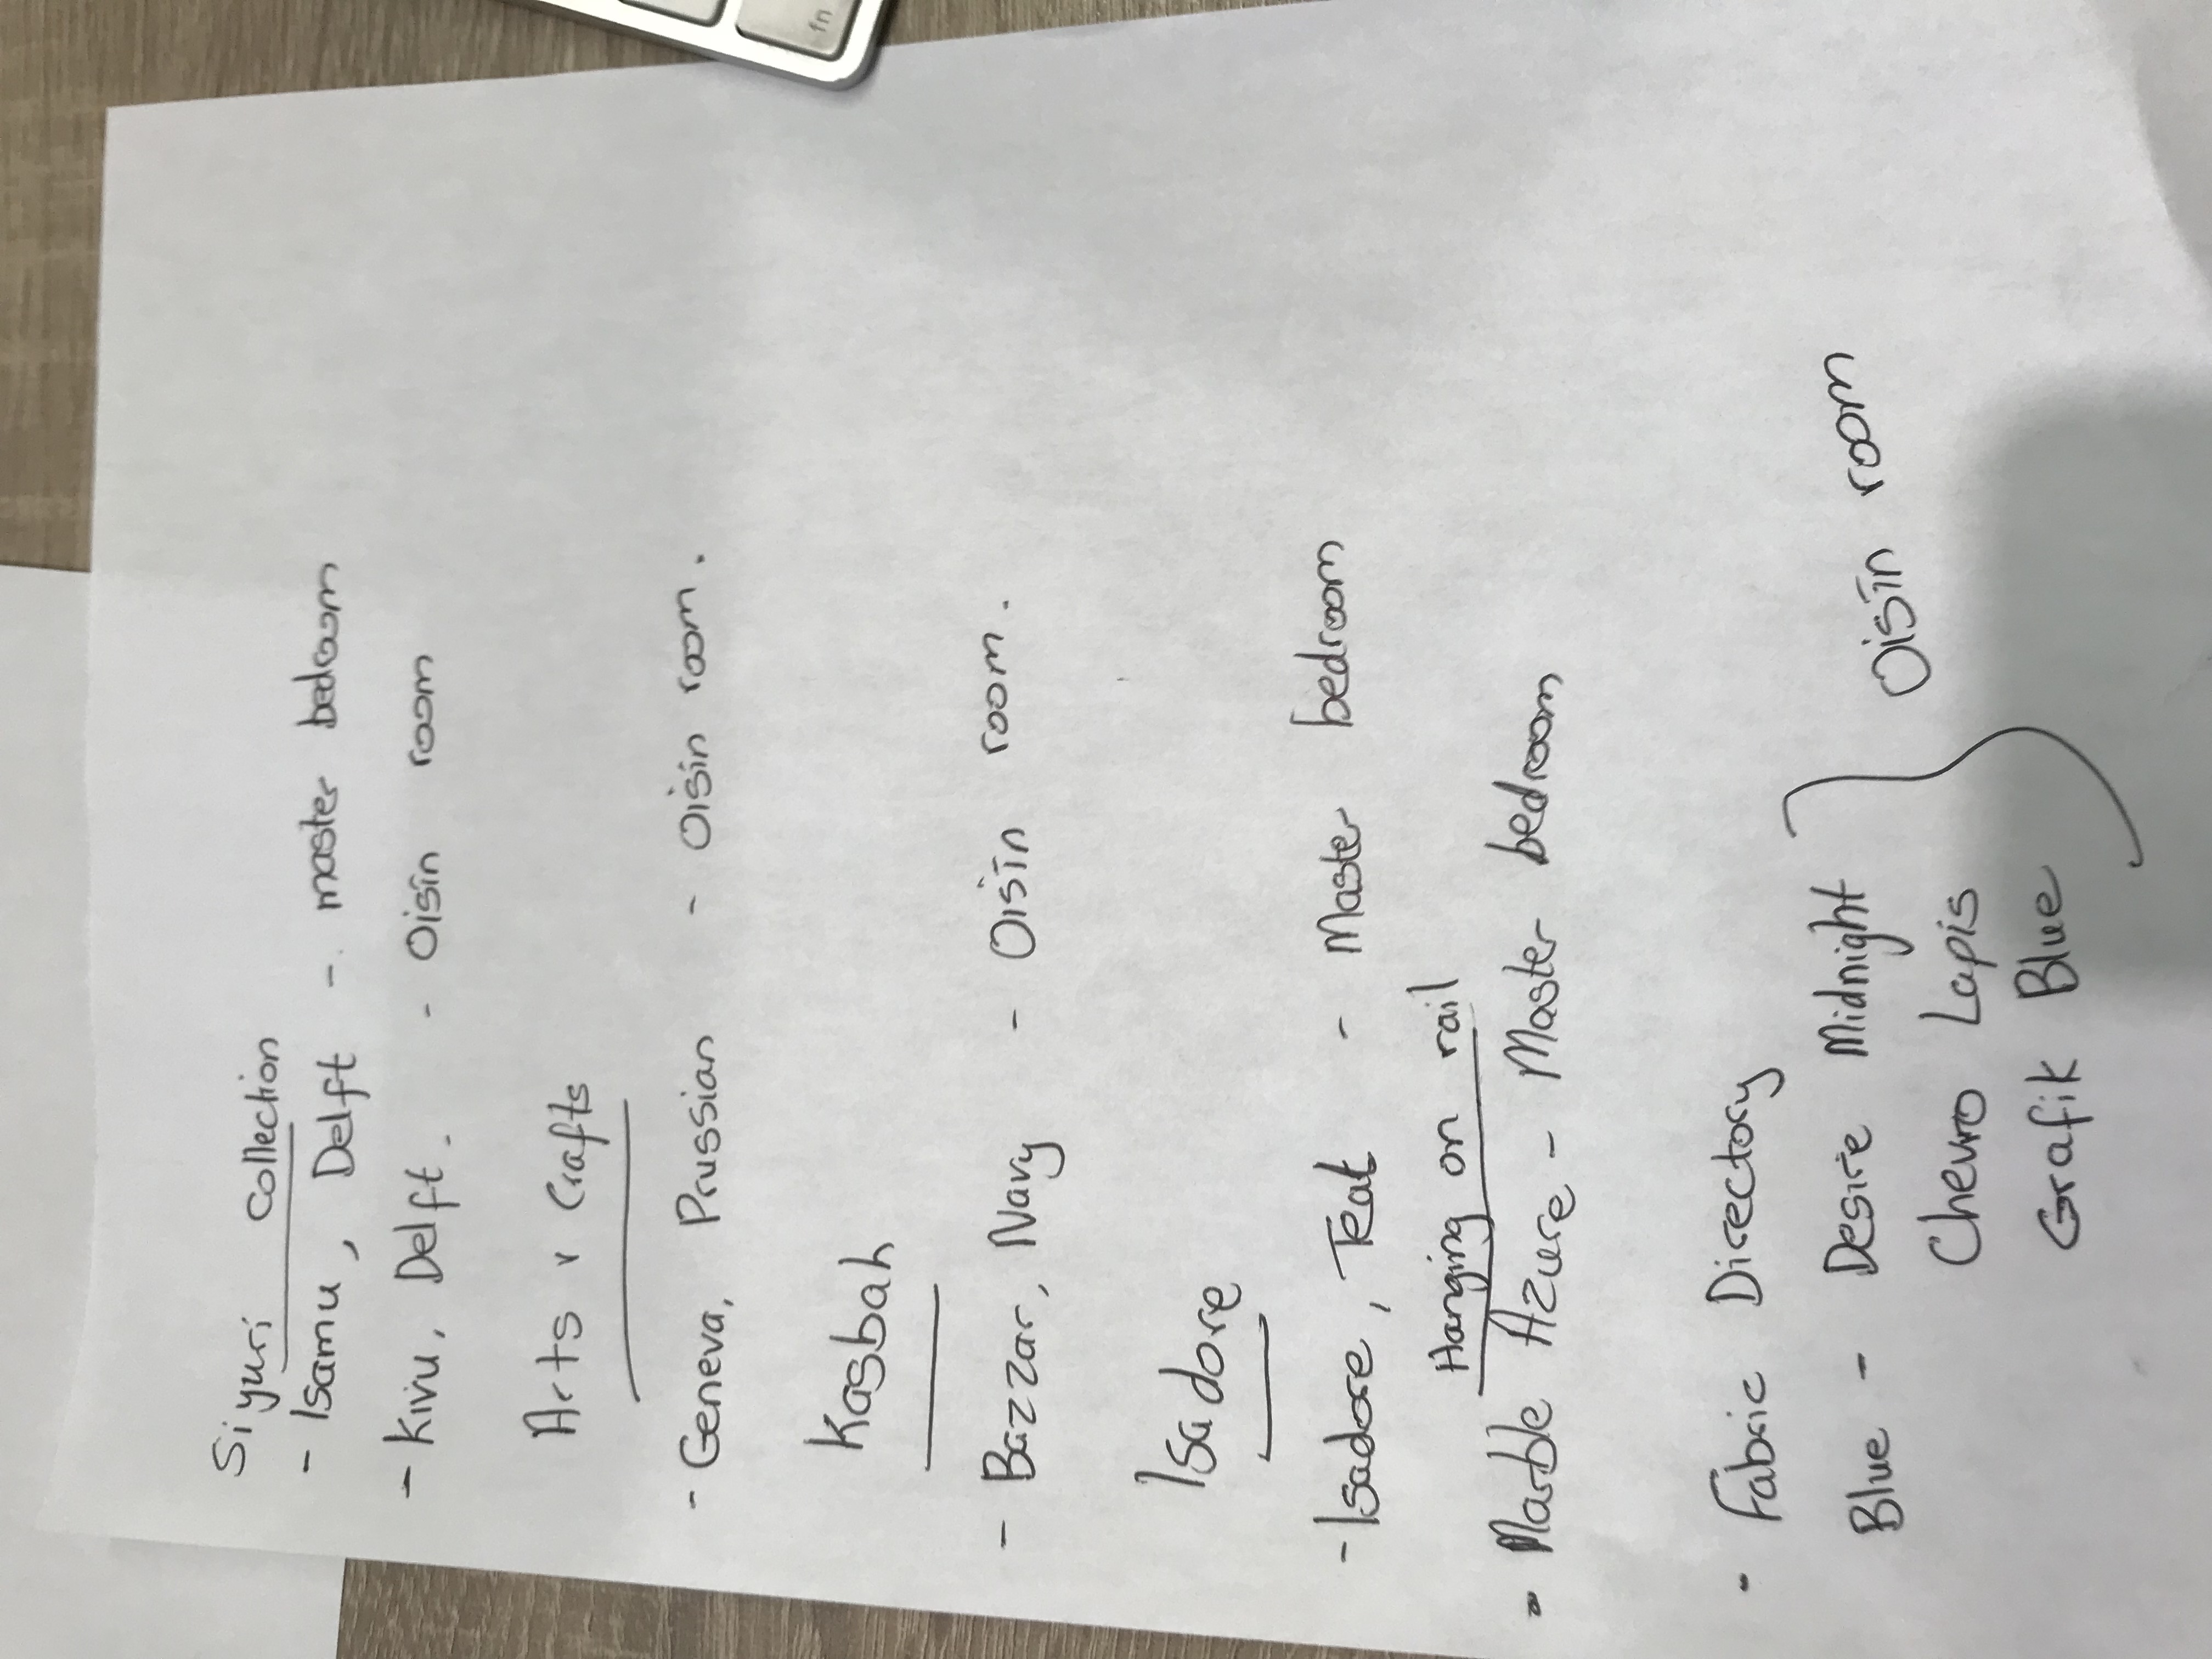 fn
Siyuri Collection
- Isamu, Delft - master bedroom
- Kivu, Delft. - Oisín room
Arts v Crafts
- Geneva, Prussian - Oisín room.
Kasbah
- Bazzar, Navy - Oisín room.
Isadore
- Isadore, Teal - Master bedroom
Hanging on rail
- Marble Azure - Master bedroom
- Fabric Directory
Blue - Desire Midnight } Oisín room
Chevro Lapis
Grafik Blue